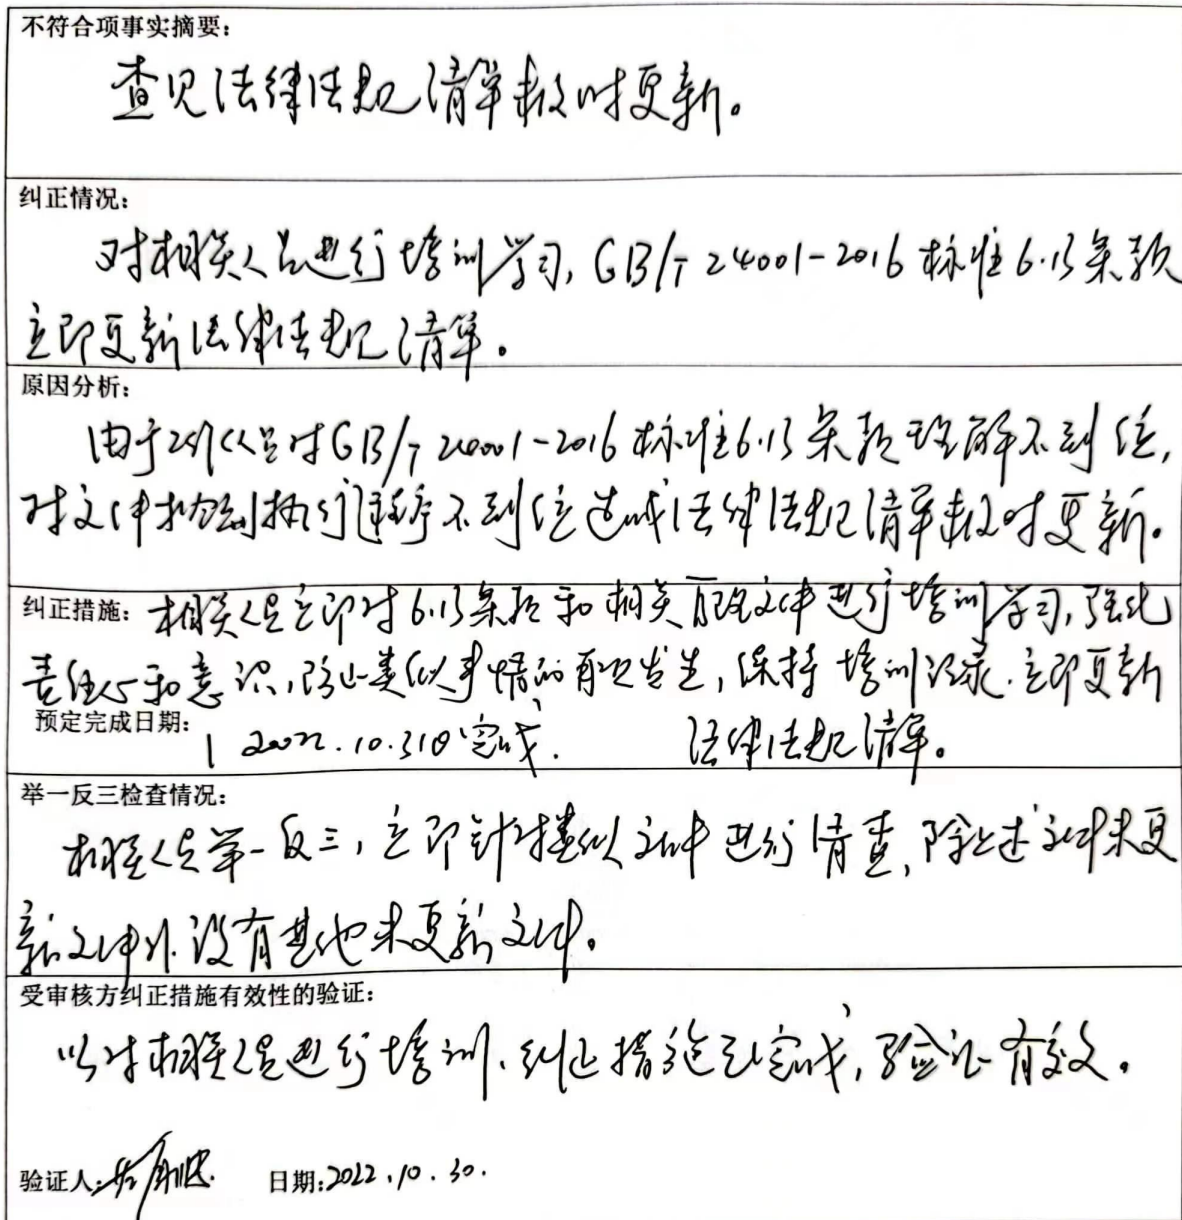 不符合项事实摘要：
查见法律法规清单未及时更新。
纠正情况：
对相关人员进行培训学习, GB/T 24001-2016 标准 6.1.3 条款
立即更新法律法规清单。
原因分析：
由于 人员对GB/T 24001-2016 标准6.1.3 条款理解不到位,
对文件 执行 不到位造成法律法规清单未及时更新。
纠正措施： 相关人员立即对 6.1.3条款和相关 文件进行培训学习, 强化
责任心和意识, 防止类似事情的再次发生, 保持培训记录. 立即更新
预定完成日期： 2022.10.31日完成. 法律法规清单。
举一反三检查情况：
相关人员举一反三, 立即针对类似文件进行清查, 除上述文件未更
新文件外. 没有其他未更新文件。
受审核方纠正措施有效性的验证：
以对相关人员进行培训. 纠正措施已完成, 验证有效。
验证人： 日期：2022.10.30.